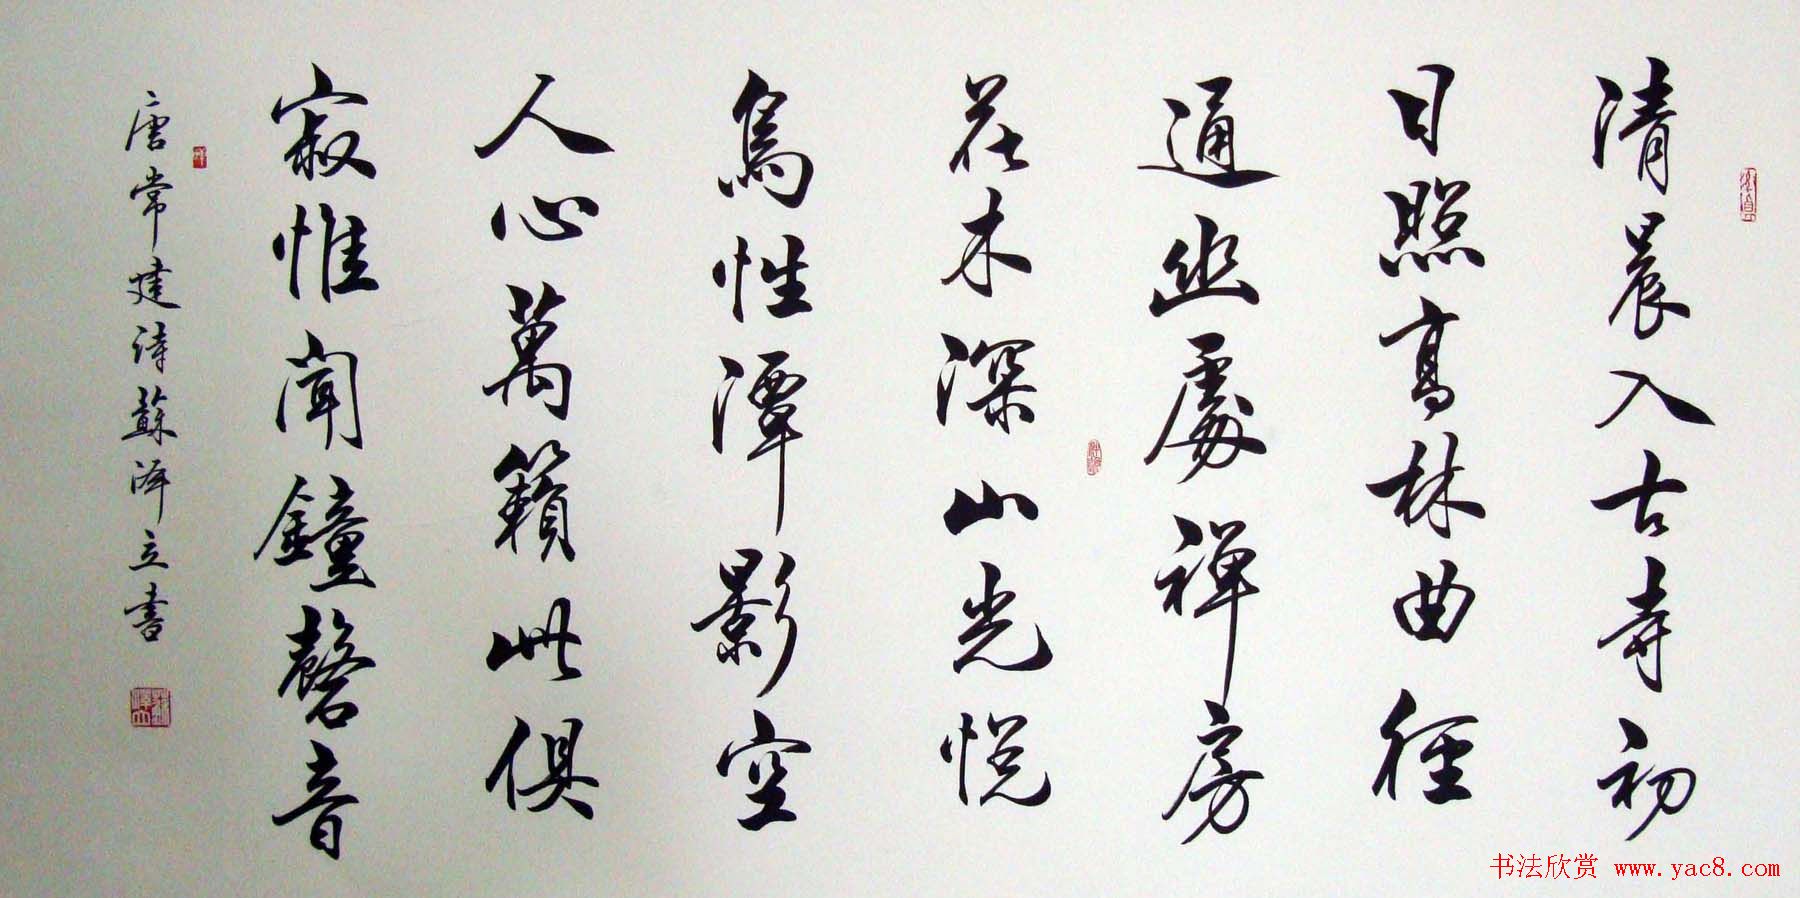 清晨入古寺初
日照高林曲径
通幽處禅房
花木深山光悦
鳥性潭影空
人心萬籟此俱
寂惟闻鐘磬音
唐常建诗蘇泽立书
书法欣赏 www.yac8.com